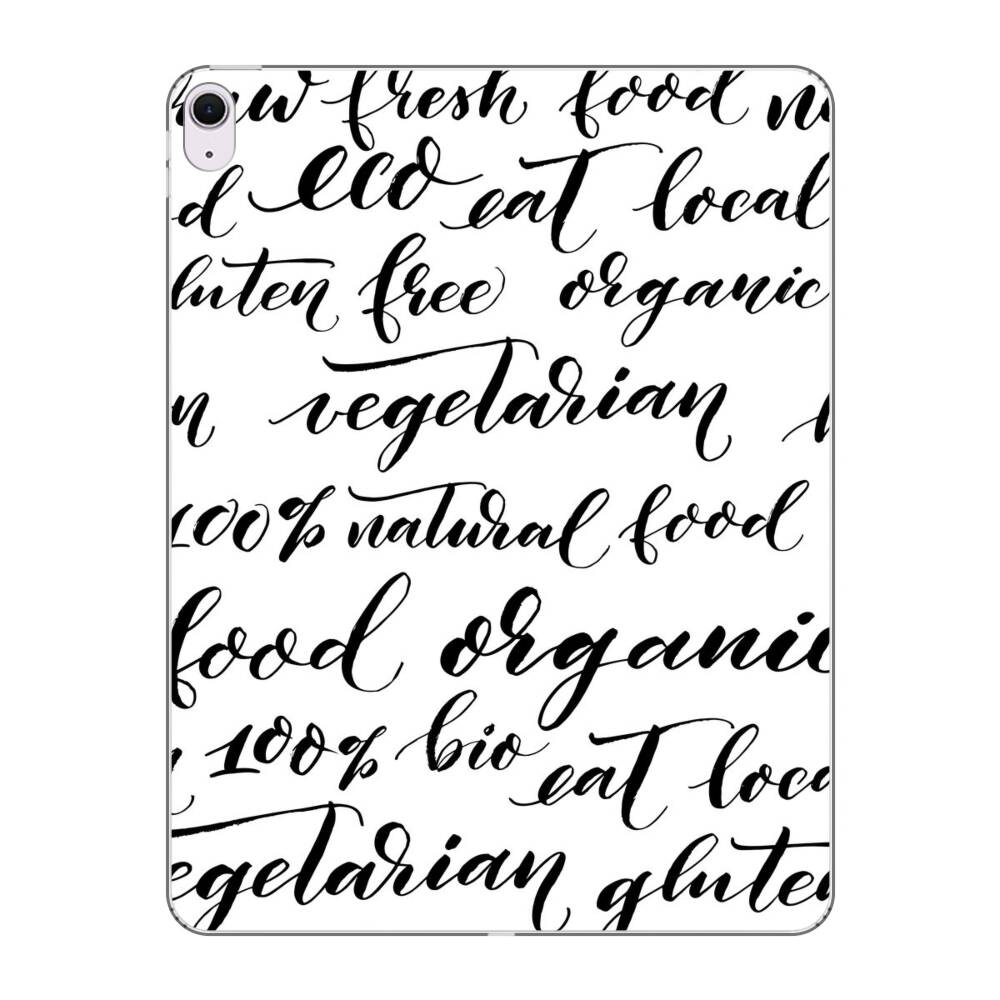 raw fresh food n
d eco eat local
luten free organic
n vegetarian
100% natural food
food organic
100% bio eat loca
egetarian gluten